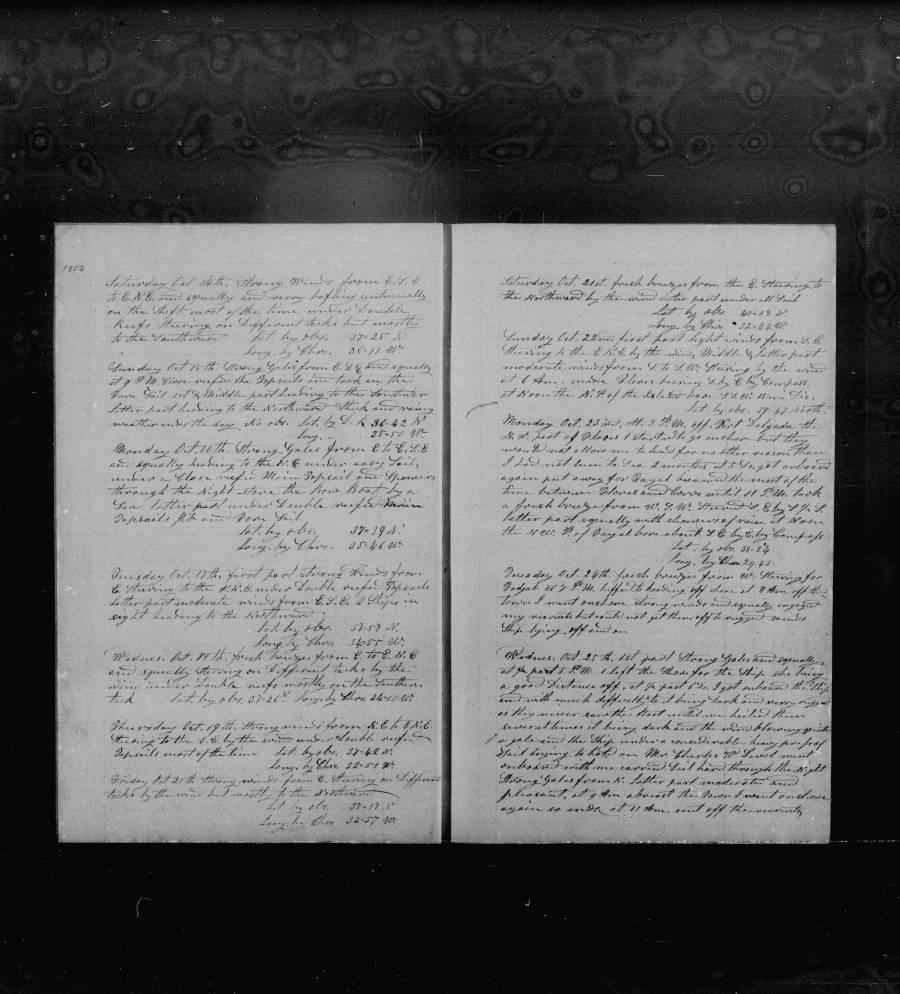 1854
Saturday Oct 14th. Strong Winds from E.S.E
to E.N.E and squally and very bafling continually
on the Shift most of the time under Double
Reefs Steering on Different tacks but mostly
to the Southward Lat by obs. 37-25 N.
Long. by Chro. 36-11 W
Sunday Oct 15th Strong Gales from E.S.E and squally
at 9 P.M. Close reefed the Topsails and took in the
Fore Sail set Middle part heading to the Southward
Latter part heading to the Northward thick and rainy
weather ends the day. No obs. Lat. by D.R 36-42 N
Long. 35-50 W
Monday Oct. 16th Strong Gales from E to E.S.E
and squally heading to the N.E under easy Sail,
under a Close reefd Main Topsail and Spencers
through the Night stove the Bow Boat by a
Sea latter part under Double reefed
Topsails Jib and Fore Sail
Lat. by obs. 37-39 N
Long. by Chro. 35-46 W
Tuesday Oct. 17th, first part strong Winds from
E. Steering to the N.N.E under Double reefd Topsails
latter part moderate winds from E.S.E. 2 Ships in
sight heading to the Northward
Lat. by obs. N.
Long. by Chro. 34-55 W.
Wednes. Oct. 18th. fresh breezes from E. to E.N.E
and squally Steering on Different tacks by the
wind under Double reefs mostly on the Southern
tack Lat. by obs. Long. by Chro. W.
Thursday Oct. 19th Strong winds from N.E to E.N.E
Steering to the S.E. by the wind under Double reefed
Topsails most of the time Lat by obs. 38-42 N.
Long. by Chro. W.
Friday Oct 20th Strong winds from E. Steering on Different
tacks by the wind but mostly to the Northward
Lat by obs. N
Long. by Chro 32-57 W.
Saturday Oct. 21st. fresh breezes from the E. Steering to
the Northward by the wind latter part under all Sail
Lat by obs. 40-13 N
Long. by Chro. 32-44 W.
Sunday Oct. 22nd. first part light winds from S.E.
Steering to the E.N.E by the wind, Middle & latter part
moderate winds from S. to S.W. Steering by the wind
at 6 A.m. made Flores bearing S.by E. by Compass.
at Noon the N.P. of the Island bore S.S.W. 15 mi Dis.
Lat by obs. 39-47 North.
Monday Oct. 23rd. At. 3 P.M. off Port Delgada the
N.W. port of Flores I started to go onshore but they
would not allow me to land for no other reason than
I had not been to Sea 2 months at 5 do. got onboard
again put away for Fayal becamed the most of the
time between Flores and Corvo until 11 P.M. took
a fresh breeze from W.S.W. Steered S.E. by S. & S.
latter part squally with showers of rain at Noon
the N.W. P. of Fayal bore about S.E by E. by Compass
Lat. by obs. 38-54
Long. by Chro. 29-43
Tuesday Oct. 24th. fresh breezes from W. Steering for
Fayal at 7 P.M. luffed to heading off shore at 8 Am. off the
town I went onshore strong winds and squally engaged
my recruits but could not get them off to rugged so ends
Ship lying off and on
Wednes. Oct. 25th. 1st part Strong Gales and squally
at ½ past 5 P.M. I left the Shore for the Ship she being
a good Distance off, at ½ past 6 do. I got onboard the Ship
and with much difficulty to it being dark and very rugged
as they never saw the Boat until we hailed them
several times it being dark and the wind blowing quite
a gale and the Ship under considerable heavy press of
Sail trying to hold on. Mr Charles W. went
onboard with me carried Sail hard through the Night
Strong Gales from N. latter part moderate and
pleasant, at 9 Am abreast the Town I went onshore
again so ends. at 11 Am. sent off the recruits